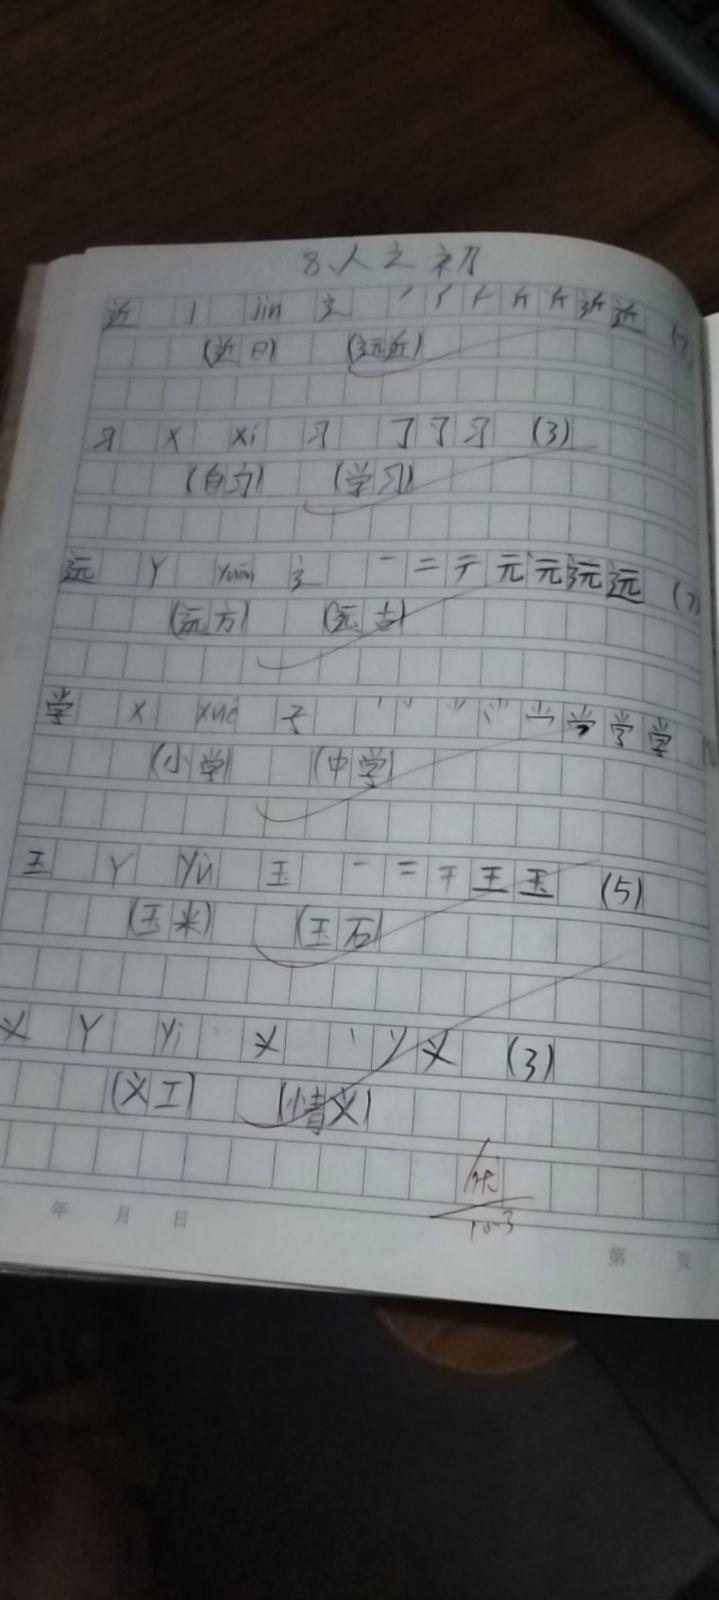 8、人之初
近 J jìn 辶 ノ 厂 斤 斤 斤 近 近 (7)
(近日) (远近)
习 X xí 习 𠃌 习 习 (3)
(自习) (学习)
远 Y yuǎn 辶 一 二 テ 元 元 远 远 (7)
(远方) (远古)
学 X xué 子 学 学 学
(小学) (中学)
玉 Y yù 玉 一 二 干 王 玉 (5)
(玉米) (玉石)
义 Y yì 义 丶 义 (3)
(义工) (情义)
优
10.3
年 月 日
第 页